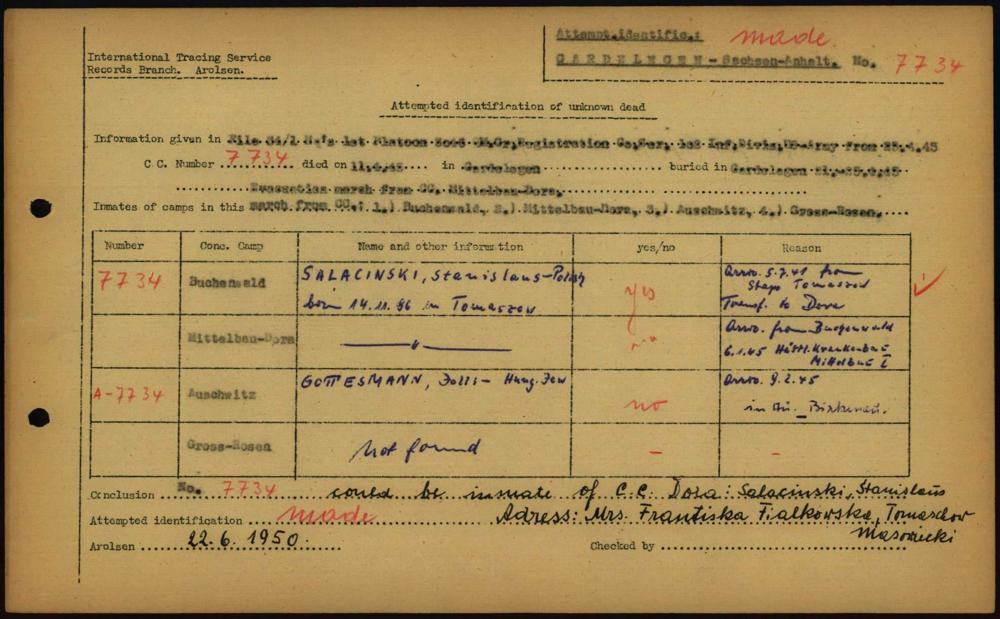 Attempt.identific.: made
GARDELEGEN - Sachsen-Anhalt. No. 7734
International Tracing Service
Records Branch. Arolsen.
Attempted identification of unknown dead
Information given in File 54/1 1st Platoon Registration from 25.4.45
C.C. Number 7734 died on 11.4.45 in Gardelegen buried in Gardelegen
Evacuation march from CC. Mittelbau-Dora,
Inmates of camps in this march from CC.: 1.) Buchenwald, 2.) Mittelbau-Dora, 3.) Auschwitz, 4.) Gross-Rosen.
Number Conc. Camp Name and other information yes/no Reason
7734 Buchenwald SALACINSKI, Stanislaus-Polish yes Arrv. 5.7.41 from
born 14.11.96 in Tomaszow Stapo Tomaszow
Transf. to Dora
Mittelbau-Dora —"— Arrv. from
6.1.45 Häftl. Krankenbau
Mittelbau I
A-7734 Auschwitz GOTTESMANN, - Hung. Jew no Arrv. 9.2.45
in Birkenau.
Gross-Rosen Not found - -
Conclusion No. 7734 could be inmate of C.C. Dora: Salacinski, Stanislaus
Attempted identification made Adress: Mrs. Frantiska Fialkowska, Tomaschow
Masowiecki
Arolsen 22.6.1950. Checked by